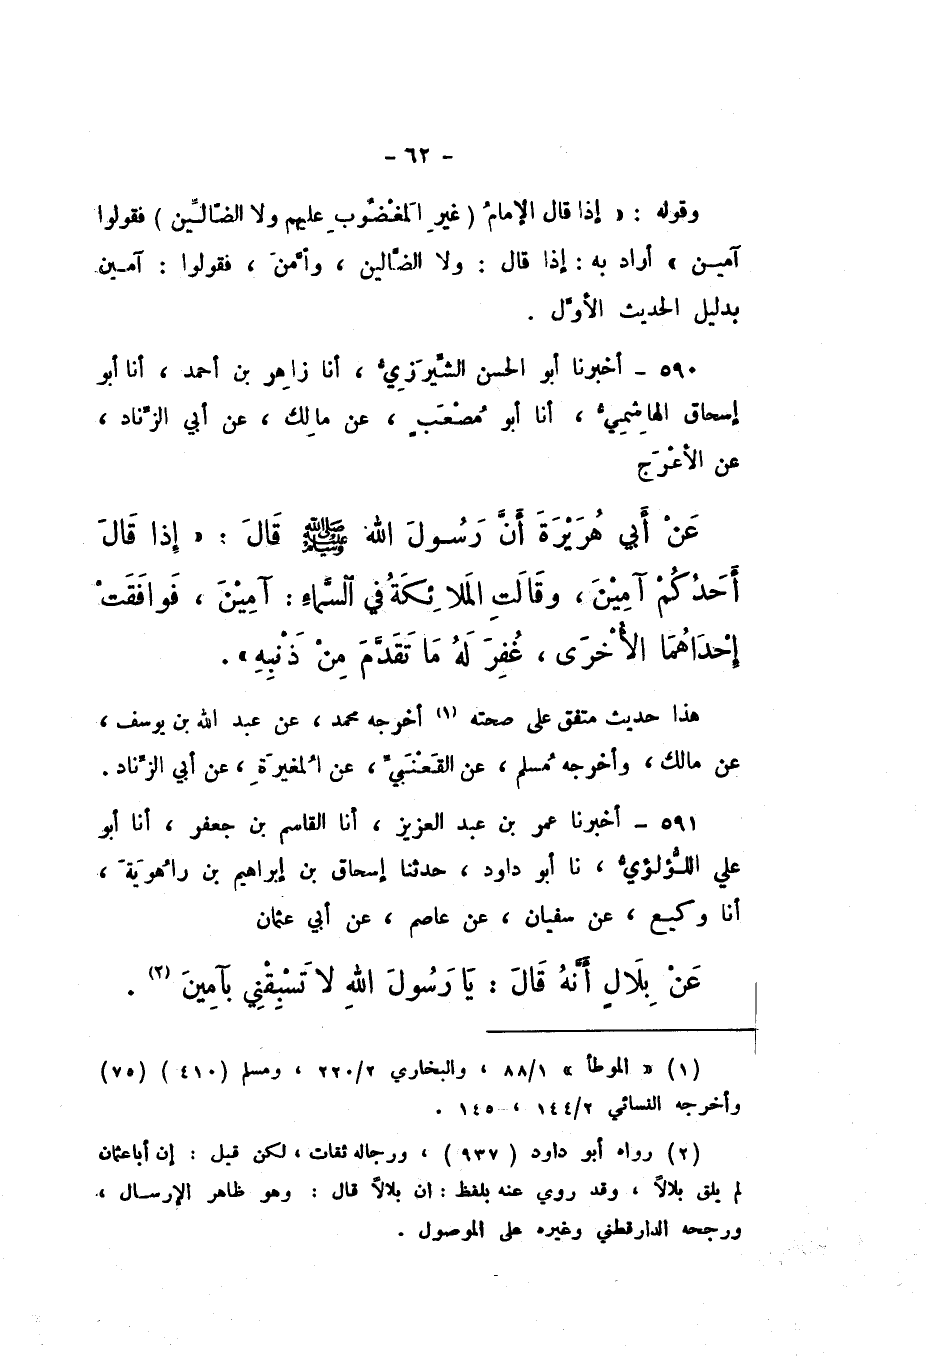 - ٦٢ -
وقوله : « إذا قال الإمامُ ( غيرِ المَغْضُوبِ عليهم ولا الضّالِّين ) فقولوا
آمين » أراد به : إذا قال : ولا الضَّالين ، وأمَّنَ ، فقولوا : آمين
بدليل الحديث الأوّل .
٥٩٠ - أخبرنا أبو الحسن الشِّيرَزِيُّ ، أنا زاهِر بن أحمد ، أنا أبو
إسحاق الهاشِمِيُّ ، أنا أبو مُصْعَبٍ ، عن مالِك ، عن أبي الزِّناد ،
عن الأَعْرَج
عَنْ أَبي هُرَيْرَةَ أَنَّ رَسُولَ اللهِ ﷺ قَالَ : « إِذا قَالَ
أَحَدُكُمْ آمِيْنَ ، وقَالَتِ المَلائِكَةُ في السَّماءِ : آمِيْنَ ، فَوافَقَتْ
إِحْدَاهُمَا الأُخْرَى ، غُفِرَ لَهُ مَا تَقَدَّمَ مِنْ ذَنْبِهِ » .
هذا حديث متفق على صحته (١) أخرجه محمد ، عن عبد الله بن يوسف ،
عن مالك ، وأخرجه مُسلم ، عن القَعْنَبيِّ ، عن المُغيرَةِ ، عن أبي الزِّناد .
٥٩١ - أخبرنا عمر بن عبد العزيز ، أنا القاسم بن جعفر ، أنا أبو
علي اللُّؤلؤيُّ ، نا أبو داود ، حدثنا إسحاق بن إبراهيم بن راهُويَةَ ،
أنا وكيع ، عن سفيان ، عن عاصم ، عن أبي عثمان
عَنْ بِلَالٍ أَنَّهُ قَالَ : يَا رَسُولَ اللهِ لا تَسْبِقْنِي بآمِينَ (٢) .
(١) « الموطأ » ٨٨/١ ، والبخاري ٢٢٠/٢ ، ومسلم (٤١٠) (٧٥)
وأخرجه النسائي ١٤٤/٢ ، ١٤٥ .
(٢) رواه أبو داود ( ٩٣٧ ) ، ورجاله ثقات ، لكن قيل : إن أبا عثمان
لم يلق بلالاً ، وقد روي عنه بلفظ : ان بلالاً قال : وهو ظاهر الإرسال ،
ورجحه الدارقطني وغيره على الموصول .